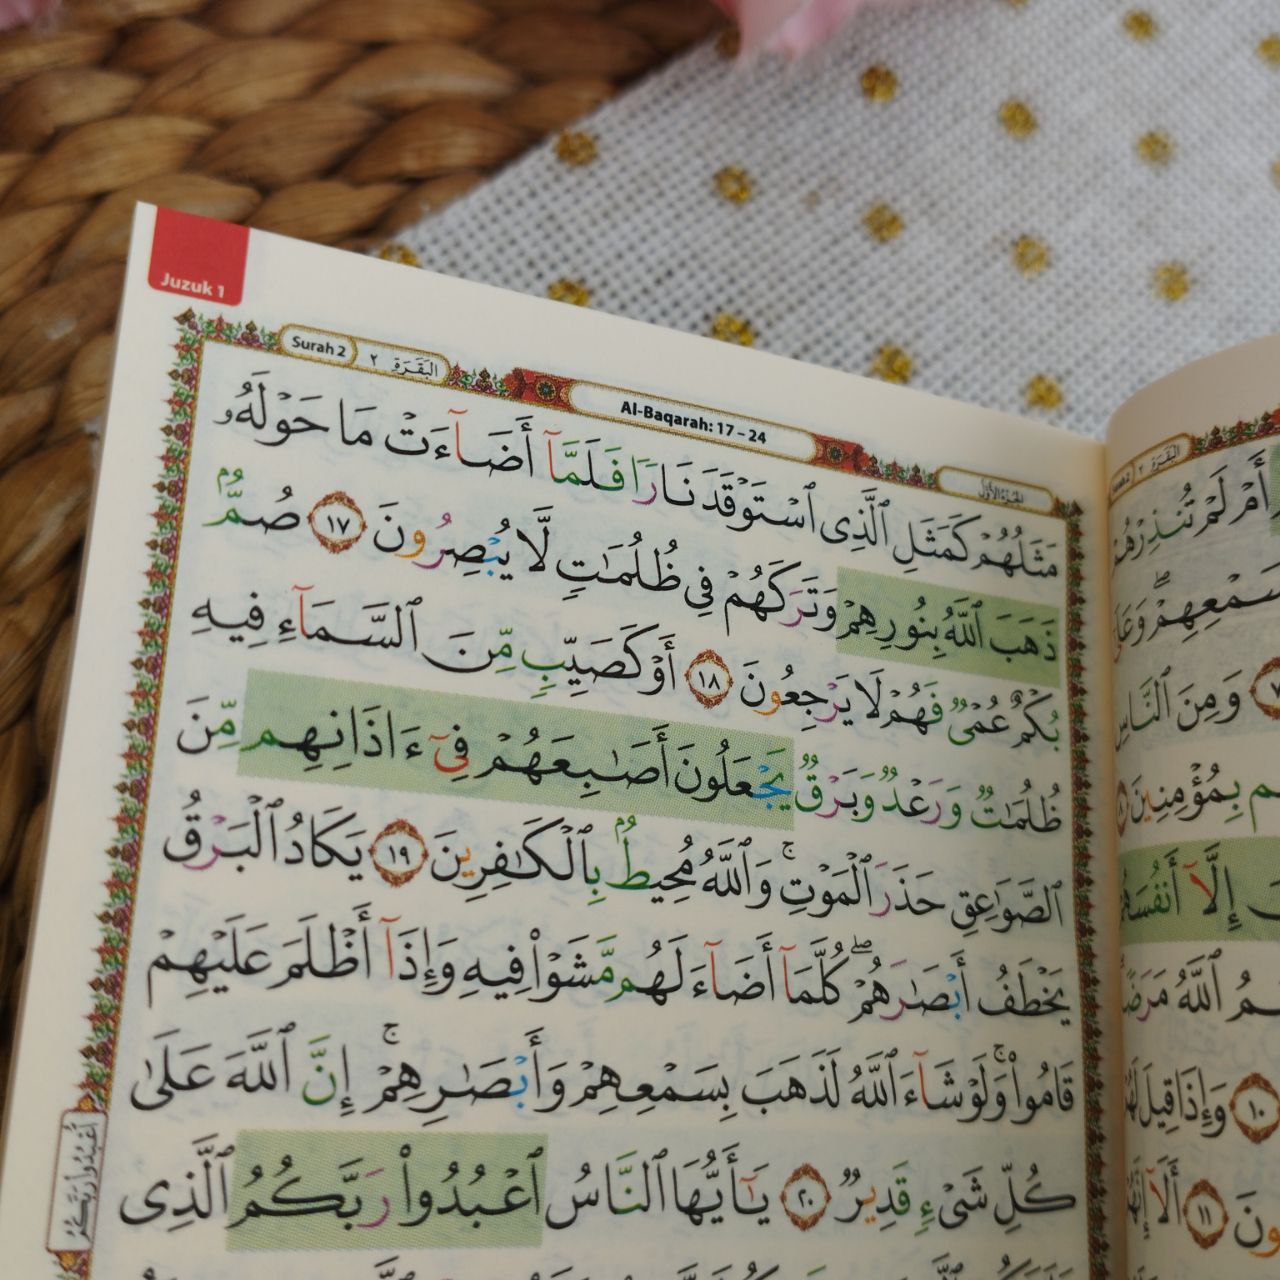 Juzuk 1
Surah 2
البقرة ٢
Al-Baqarah: 17 – 24
الجزء الأول
مَثَلُهُمْ كَمَثَلِ ٱلَّذِى ٱسْتَوْقَدَ نَارًا فَلَمَّآ أَضَآءَتْ مَا حَوْلَهُۥ
ذَهَبَ ٱللَّهُ بِنُورِهِمْ وَتَرَكَهُمْ فِى ظُلُمَٰتٍ لَّا يُبْصِرُونَ ١٧ صُمٌّۢ
بُكْمٌ عُمْىٌ فَهُمْ لَا يَرْجِعُونَ ١٨ أَوْ كَصَيِّبٍ مِّنَ ٱلسَّمَآءِ فِيهِ
ظُلُمَٰتٌ وَرَعْدٌ وَبَرْقٌ يَجْعَلُونَ أَصَٰبِعَهُمْ فِىٓ ءَاذَانِهِم مِّنَ
ٱلصَّوَٰعِقِ حَذَرَ ٱلْمَوْتِ ۚ وَٱللَّهُ مُحِيطٌۢ بِٱلْكَٰفِرِينَ ١٩ يَكَادُ ٱلْبَرْقُ
يَخْطَفُ أَبْصَٰرَهُمْ ۖ كُلَّمَآ أَضَآءَ لَهُم مَّشَوْا۟ فِيهِ وَإِذَآ أَظْلَمَ عَلَيْهِمْ
قَامُوا۟ ۚ وَلَوْ شَآءَ ٱللَّهُ لَذَهَبَ بِسَمْعِهِمْ وَأَبْصَٰرِهِمْ ۚ إِنَّ ٱللَّهَ عَلَىٰ
كُلِّ شَىْءٍ قَدِيرٌ ٢٠ يَٰٓأَيُّهَا ٱلنَّاسُ ٱعْبُدُوا۟ رَبَّكُمُ ٱلَّذِى
ٱعْبُدُوا۟ رَبَّكُمُ
البقرة ٢
أَمْ لَمْ تُنذِرْهُمْ
سَمْعِهِمْ ۖ وَعَلَىٰ
وَمِنَ ٱلنَّاسِ
بِمُؤْمِنِينَ
إِلَّآ أَنفُسَهُمْ
ٱللَّهُ مَرَضًا
١٠ وَإِذَا قِيلَ لَهُمْ
١١ أَلَآ إِنَّهُمْ